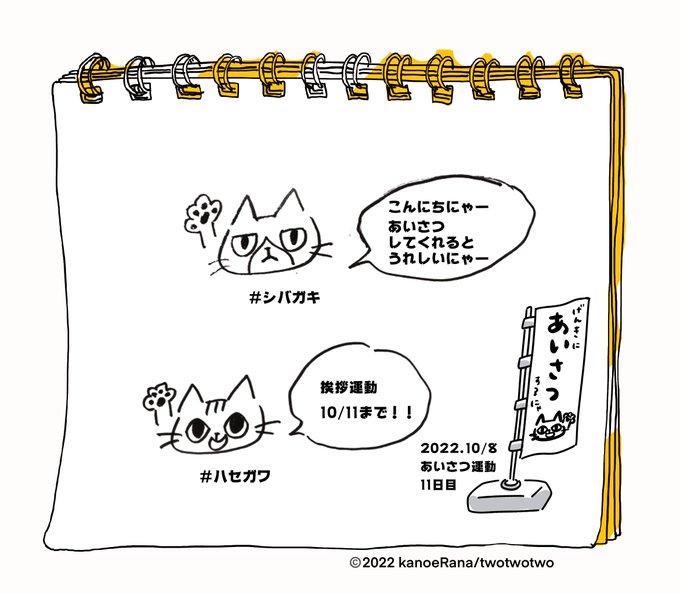 こんにちにゃー
あいさつ
してくれると
うれしいにゃー
#シバガキ
挨拶運動
10/11まで!!
#ハセガワ
げんきに
あいさつ
するにゃ
2022.10/8
あいさつ運動
11日目
©2022 kanoeRana/twotwotwo